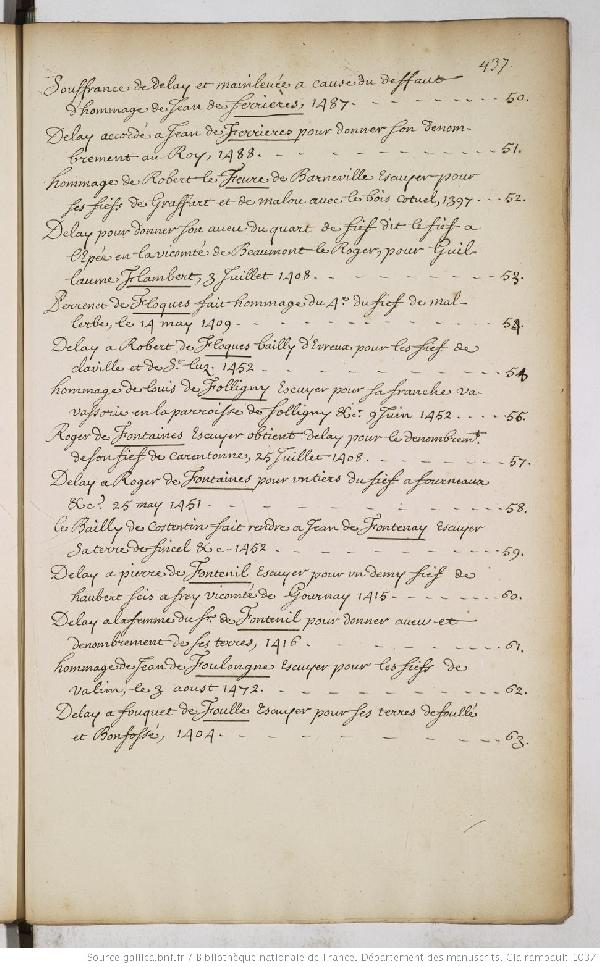 437
Souffrance de delay et mainleuée a cause du deffaut
d'hommage de Jean de Ferrieres, 1487. - - - - - - - 50.
Delay accordé a Jean de Ferrieres pour donner son denom-
brement au Roy, 1488. - - - - - - - - - 51.
hommage de Robert le Feure de Barneville Escuyer pour
ses fiefs de Graffart et de malou auec le bois Cotuel, 1397 - - - 52.
Delay pour donner son aueu du quart de fief dit le fief a
l'Epée en la vicomté de Beaumont le Roger, pour Guil-
laume Flambert, 3 Juillet 1408. - - - - - - - - 53.
Perrenet de Floques fait hommage du 4.e du fief de mal-
lerbe, le 14 may 1409 - - - - - - - - - 54.
Delay a Robert de Floques bailly d'Evreux pour les fief de
claville et de St. Luz. 1452 - - - - - - - - - 54.
hommage de louis de Folligny Escuyer pour sa franche va-
vassorie en la parroisse de folligny &c. 9 Juin 1452 - - - - 56.
Roger de Fontaines Escuyer obtient delay pour le denombremt.
de son fief de Carentonne, 25 Juillet 1408. - - - - - - 57.
Delay a Roger de Fontaines pour un tiers du fief a fourneaux
&c. 25 may 1451 - - - - - - - - - 58.
le Bailly de Costentin fait rendre a Jean de Fontenay Escuyer
sa terre de fincel &c - 1452 - - - - - - - - 59.
Delay a pierre de Fontenil Escuyer pour un demy fief de
haubert sois a frey vicomté de Gournay 1415 - - - - - - 60.
Delay a la femme du Sr. de Fontenil pour donner aueu et
denombrement de ses terres, 1416 - - - - - - - 61.
hommage de Jean de Foulongne Escuyer pour les fiefs de
valim, le 3 aoust 1472. - - - - - - - - 62.
Delay a fouquet de Foulle Escuyer pour ses terres de foullé
et Bonfossé, 1404 - - - - - - - - - 63.
Source gallica.bnf.fr / Bibliothèque nationale de France. Département des manuscrits. Clairambault 1037